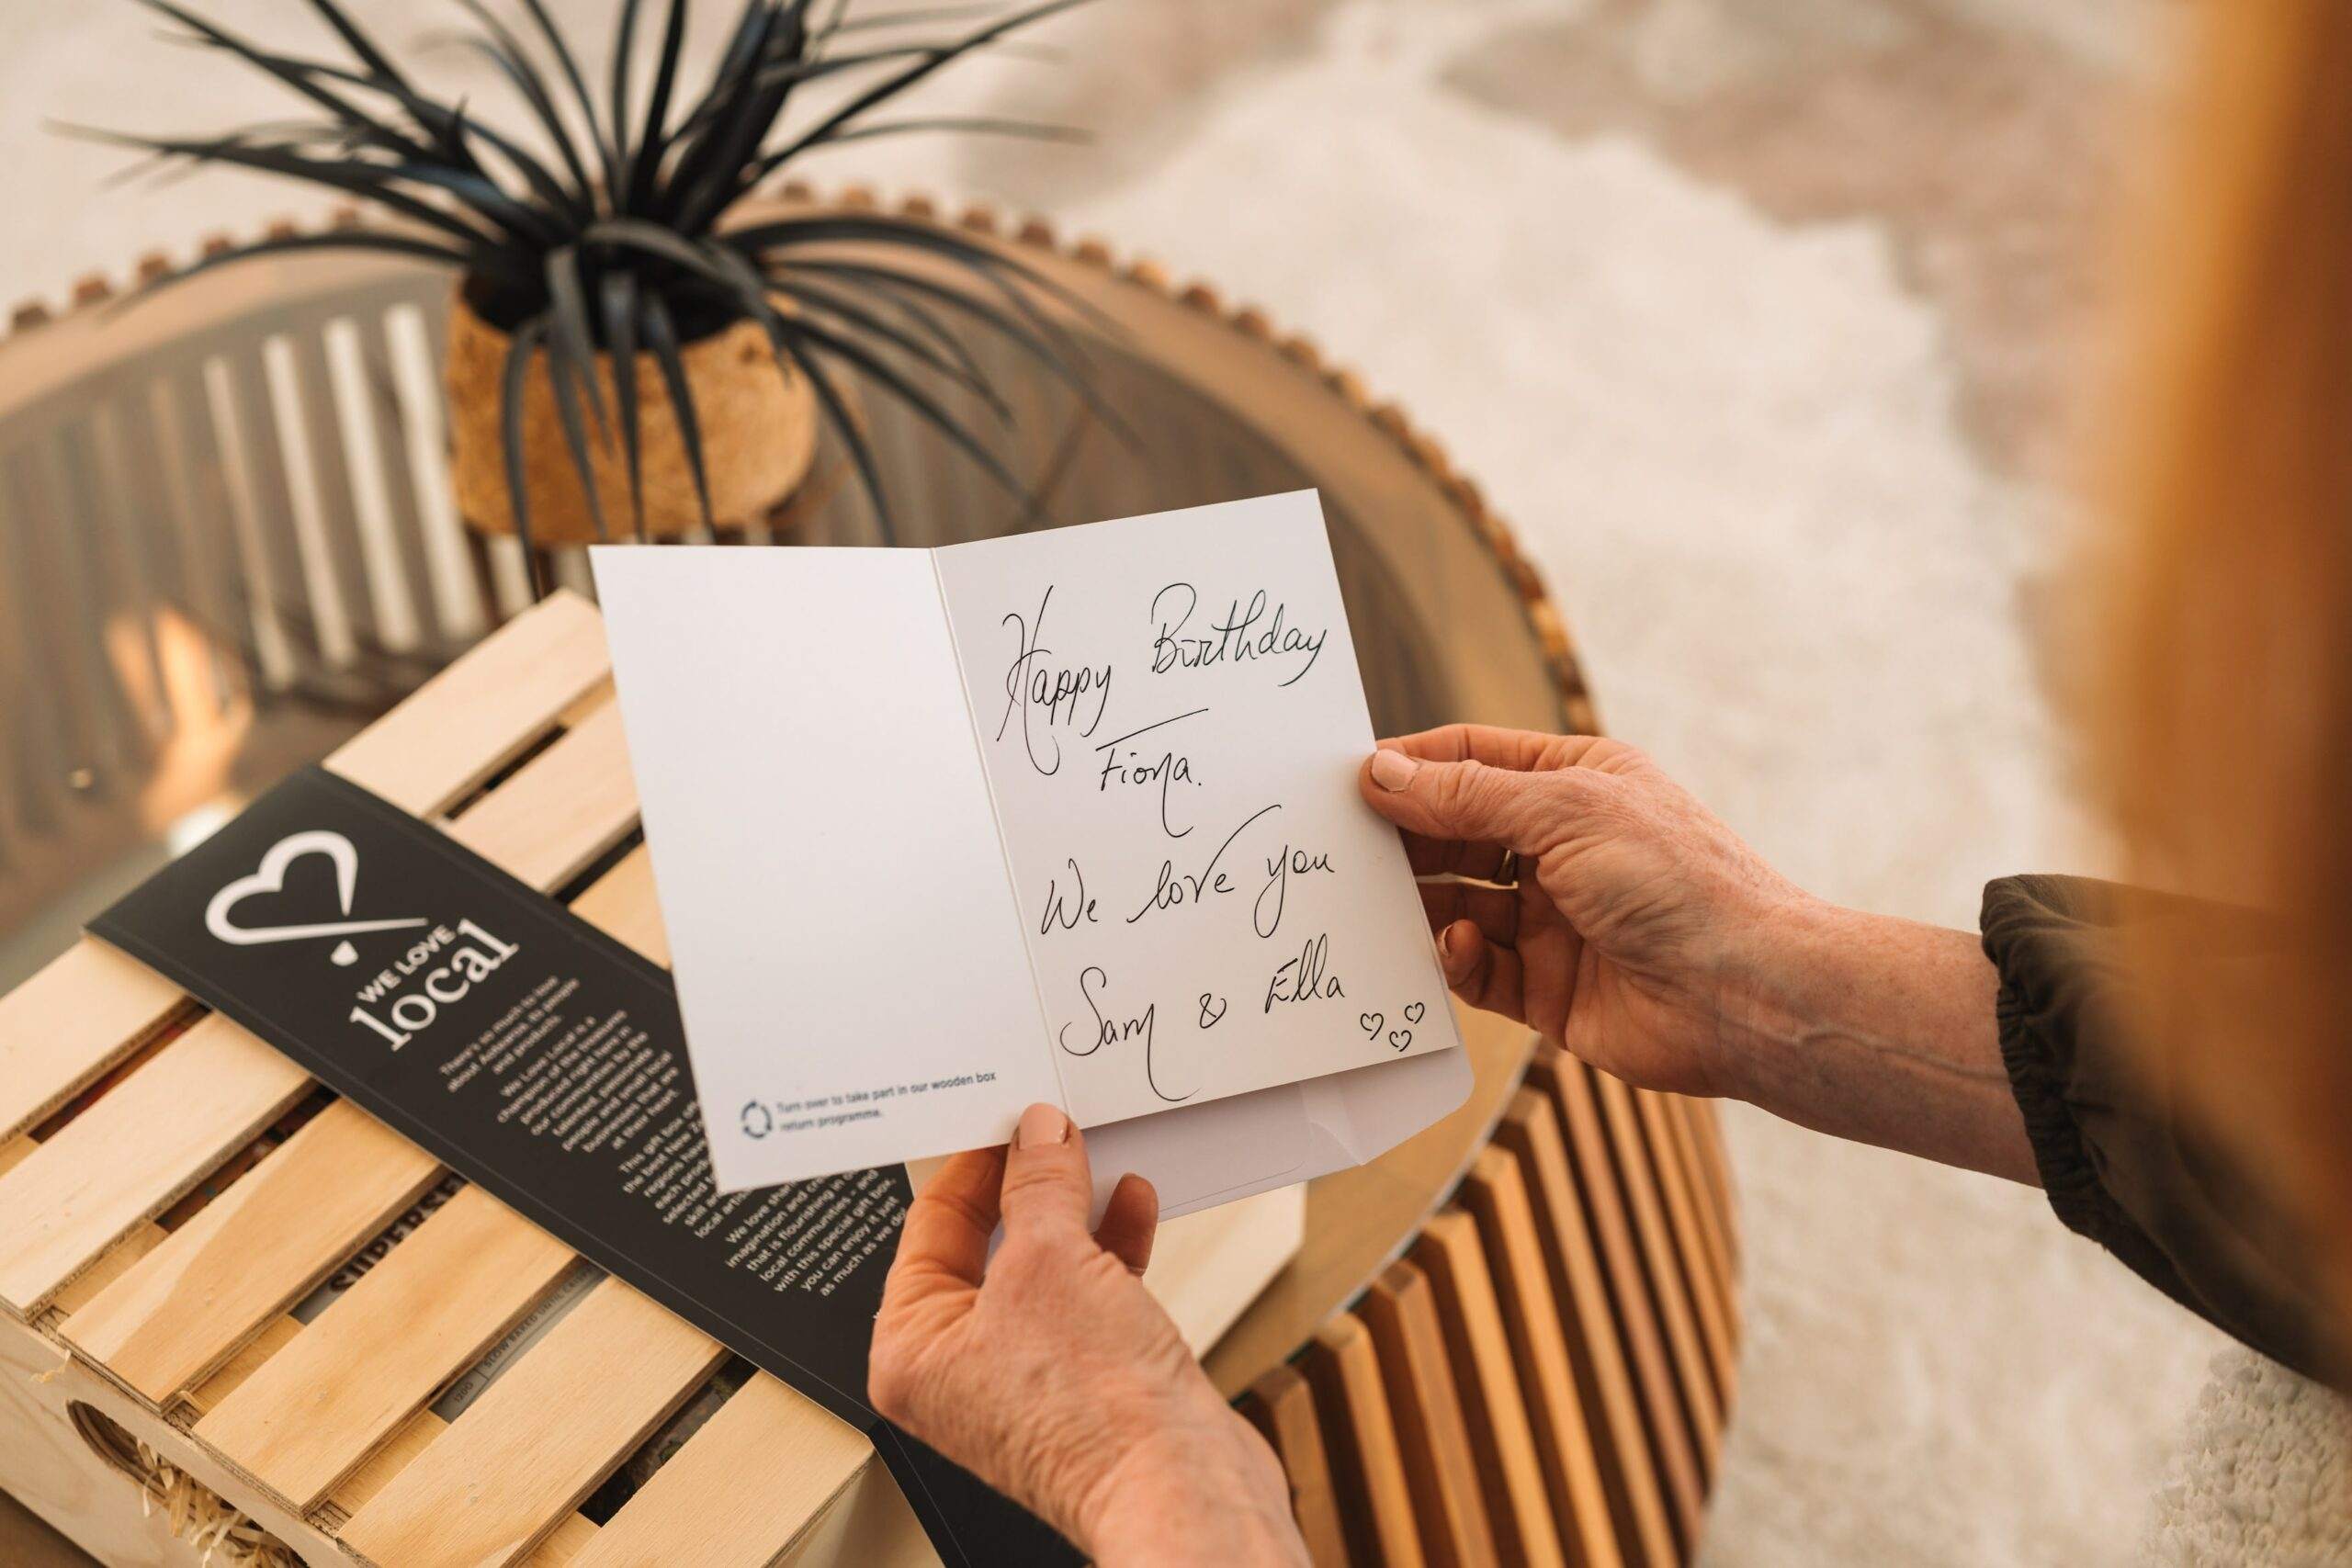 Happy Birthday
Fiona.
We love you
Sam & Ella
Turn over to take part in our wooden box
return programme.
WE LOVE
local
There's so much to love
about Aotearoa, its people
and products.
We Love Local is a
of the treasures
produced right here in
our communities by the
people and
businesses that are
at their heart.
This gift box
the best New
regions have
each
selected
skill
local
We love the
imagination and
that is flourishing in
local communities - and
with this special gift box,
you can enjoy it just
as much as we do!
SUPERSE
SLOW BAKED
120G